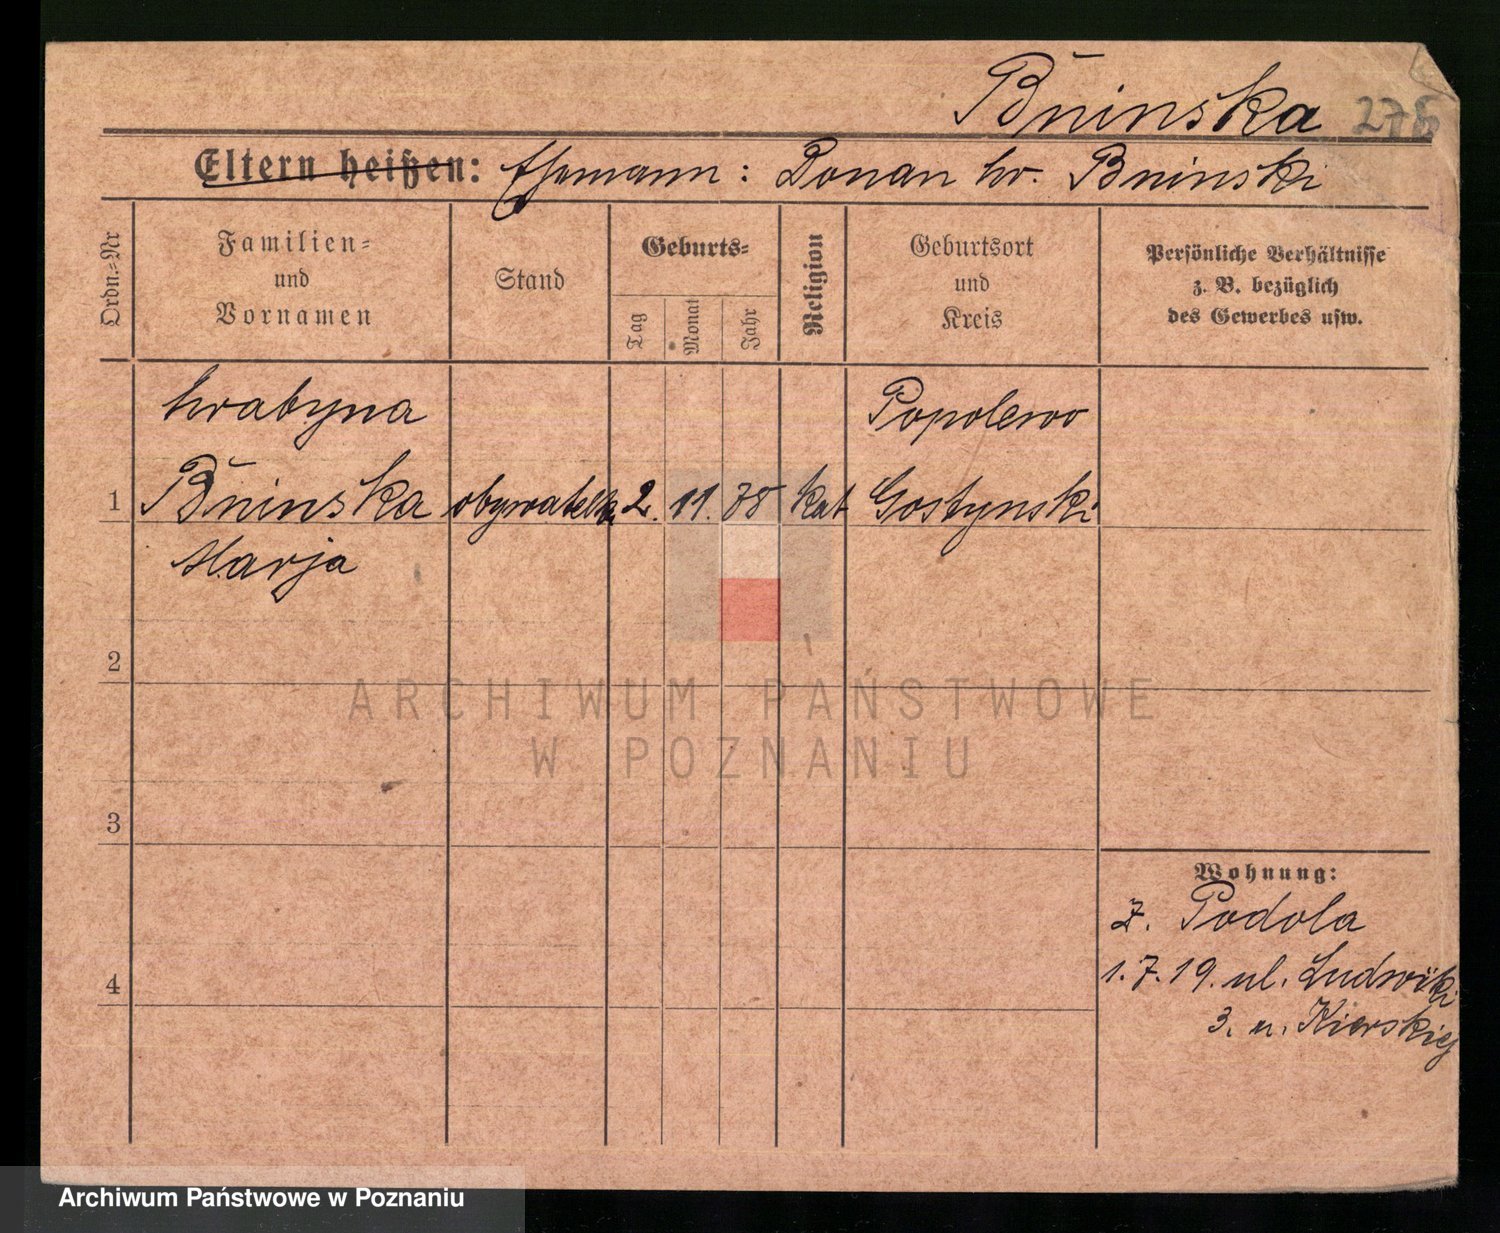 Bninska 278
Eltern heißen: Ehemann: Donan hr. Bninski
Ordn.=Nr
Familien=
und
Vornamen
Stand
Geburts=
Tag
Monat
Jahr
Religion
Geburtsort
und
Kreis
Persönliche Verhältnisse
z. B. bezüglich
des Gewerbes usw.
hrabyna
Popolewo
1 Bninska obywatelka 2. 11. 78 kat Gostynski
Marja
2
ARCHIWUM PAŃSTWOWE
W POZNANIU
3
Wohnung:
z. Podola
1.7.19. ul. Ludwiki
4
3. u. Kierskiej
Archiwum Państwowe w Poznaniu